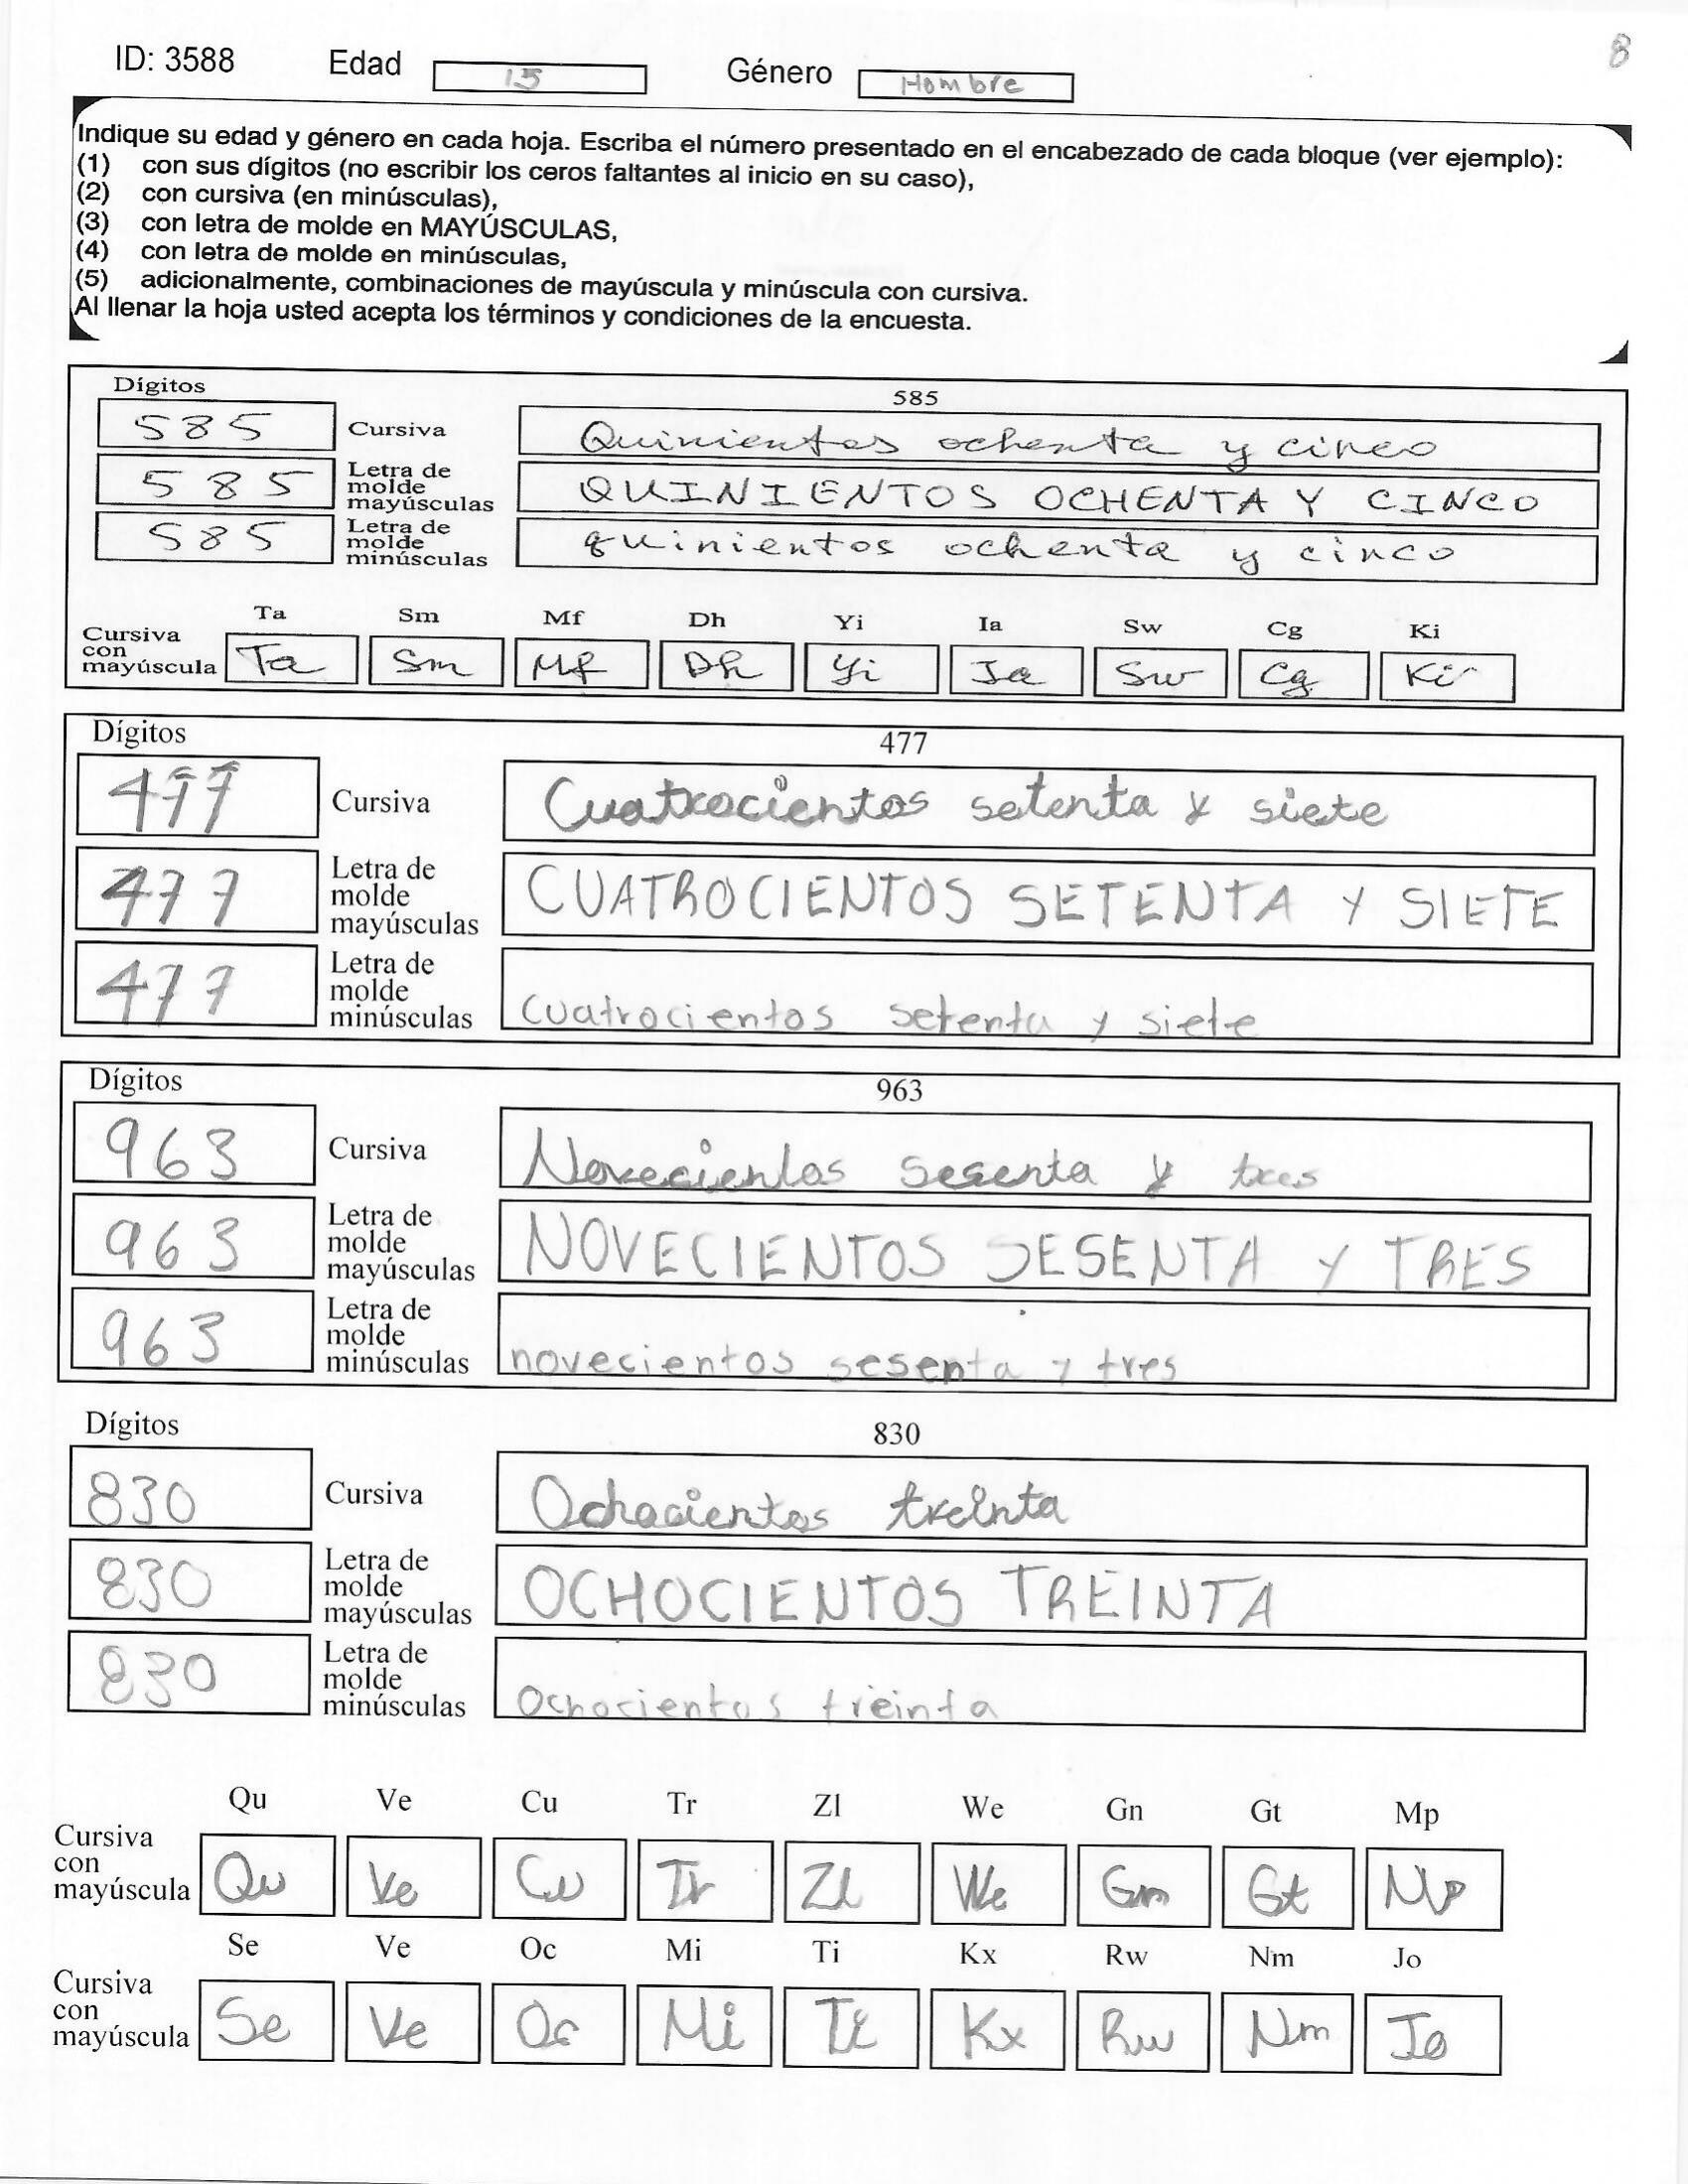 ID: 3588 Edad 15 Género Hombre 8
Indique su edad y género en cada hoja. Escriba el número presentado en el encabezado de cada bloque (ver ejemplo):
(1) con sus dígitos (no escribir los ceros faltantes al inicio en su caso),
(2) con cursiva (en minúsculas),
(3) con letra de molde en MAYÚSCULAS,
(4) con letra de molde en minúsculas,
(5) adicionalmente, combinaciones de mayúscula y minúscula con cursiva.
Al llenar la hoja usted acepta los términos y condiciones de la encuesta.
Dígitos 585
585 Cursiva Quinientos ochenta y cinco
585 Letra de molde mayúsculas QUINIENTOS OCHENTA Y CINCO
585 Letra de molde minúsculas quinientos ochenta y cinco
Ta Sm Mf Dh Yi Ia Sw Cg Ki
Cursiva con mayúscula Ta Sm Mf Dh Yi Ia Sw Cg Ki
Dígitos 477
477 Cursiva Cuatrocientos setenta y siete
477 Letra de molde mayúsculas CUATROCIENTOS SETENTA Y SIETE
477 Letra de molde minúsculas cuatrocientos setenta y siete
Dígitos 963
963 Cursiva Novecientos sesenta y tres
963 Letra de molde mayúsculas NOVECIENTOS SESENTA Y TRES
963 Letra de molde minúsculas novecientos sesenta y tres
Dígitos 830
830 Cursiva Ochocientos treinta
830 Letra de molde mayúsculas OCHOCIENTOS TREINTA
830 Letra de molde minúsculas ochocientos treinta
Qu Ve Cu Tr Zl We Gn Gt Mp
Cursiva con mayúscula Qu Ve Cu Tr Zl We Gm Gt Mp
Se Ve Oc Mi Ti Kx Rw Nm Jo
Cursiva con mayúscula Se Ve Oc Mi Ti Kx Rw Nm Jo